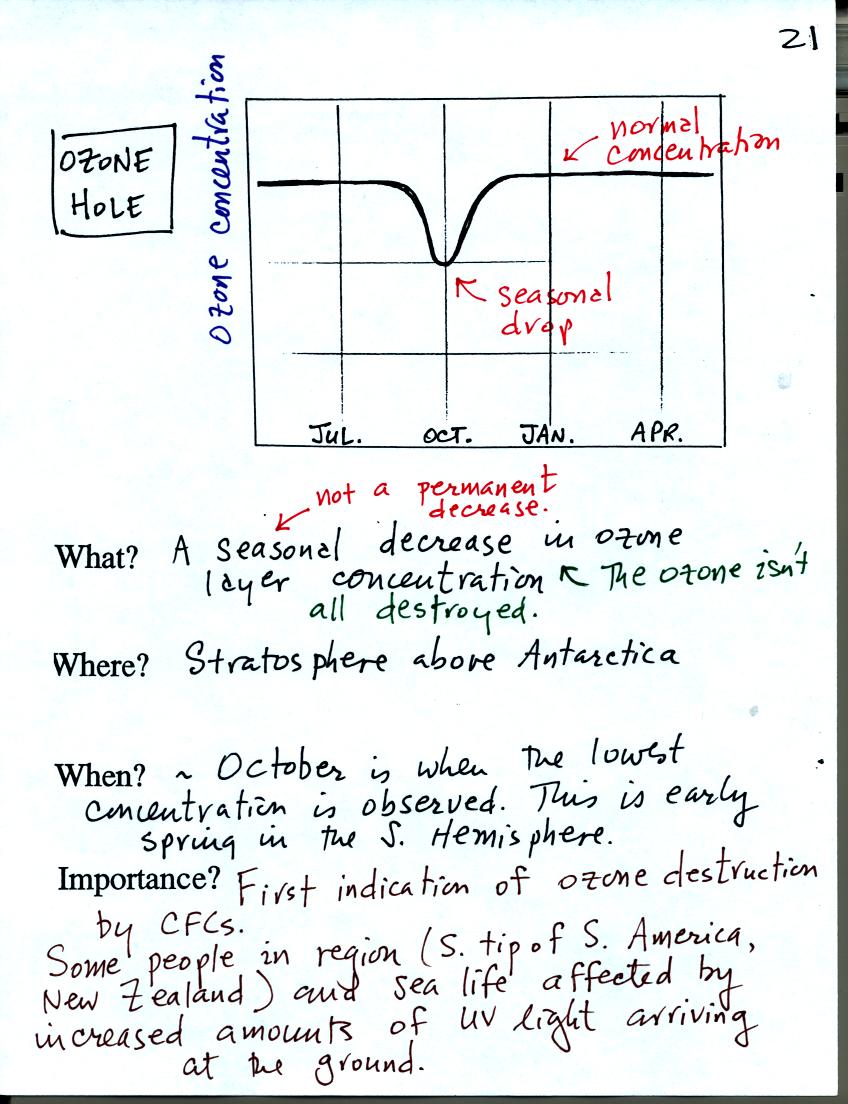 21
OZONE
HOLE
Ozone concentration
normal
concentration
seasonal
drop
JUL. OCT. JAN. APR.
not a permanent
decrease.
What? A seasonal decrease in ozone
layer concentration The ozone isn't
all destroyed.
Where? Stratosphere above Antarctica
When? ~ October is when the lowest
concentration is observed. This is early
spring in the S. Hemisphere.
Importance? First indication of ozone destruction
by CFCs.
Some people in region (S. tip of S. America,
New Zealand) and sea life affected by
increased amounts of UV light arriving
at the ground.